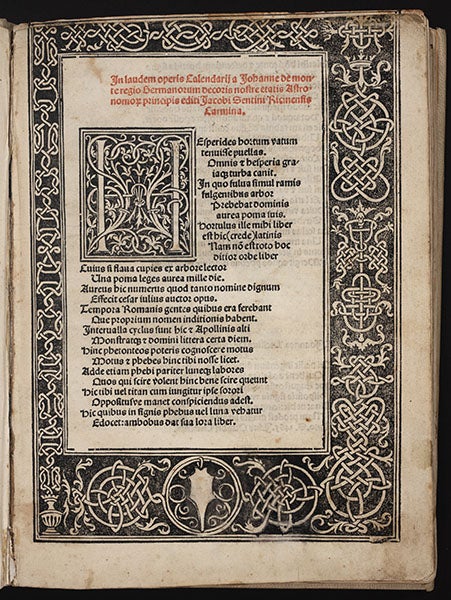 In laudem operis Calendarij a Johanne de mon-
te regio Germanorum decoris nostre etatis Astro-
nomoꝝ principis editi Jacobi Sentini Ricinensis
Carmina.
HEsperides hortum vatum
tenuisse puellas.
Omnis & hesperia gra-
iaqꝫ turba canit.
In quo fuluus simul ramis
fulgentibus arbor
Prebebat dominis
aurea poma suis.
Hortulus ille mihi liber
est hic (crede) latinis
Nam nõ estroto hoc
ditior orbe liber
Cuius si flaua cupies ex arbore lector
Una poma leges aurea mille die.
Aureus hic numerus quod tanto nomine dignum
Effecit cesar iulius auctor opus.
Tempora Romanis gentes quibus era ferebant
Que proprium nomen inditionis habent.
Interualla cyclus sunt hic & Apollinis alti
Monstratqꝫ & domini littera certa diem.
Hinc pheronteos poteris cognoscere motus
Motus & phebes hinc tibi nosse licet.
Adde etiam phebi pariter luneqꝫ labores
Quos qui scire volent hinc bene scire queunt
Hic tibi uel titan cum iungitur ipse sorori
Oppositusve manet conspiciendus adest.
Hic quibus in signis phebus uel luna vehatur
Edocet: ambobus dat sua lora liber.